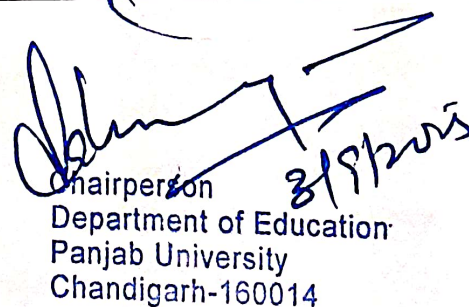 Chairperson
Department of Education
Panjab University
Chandigarh-160014